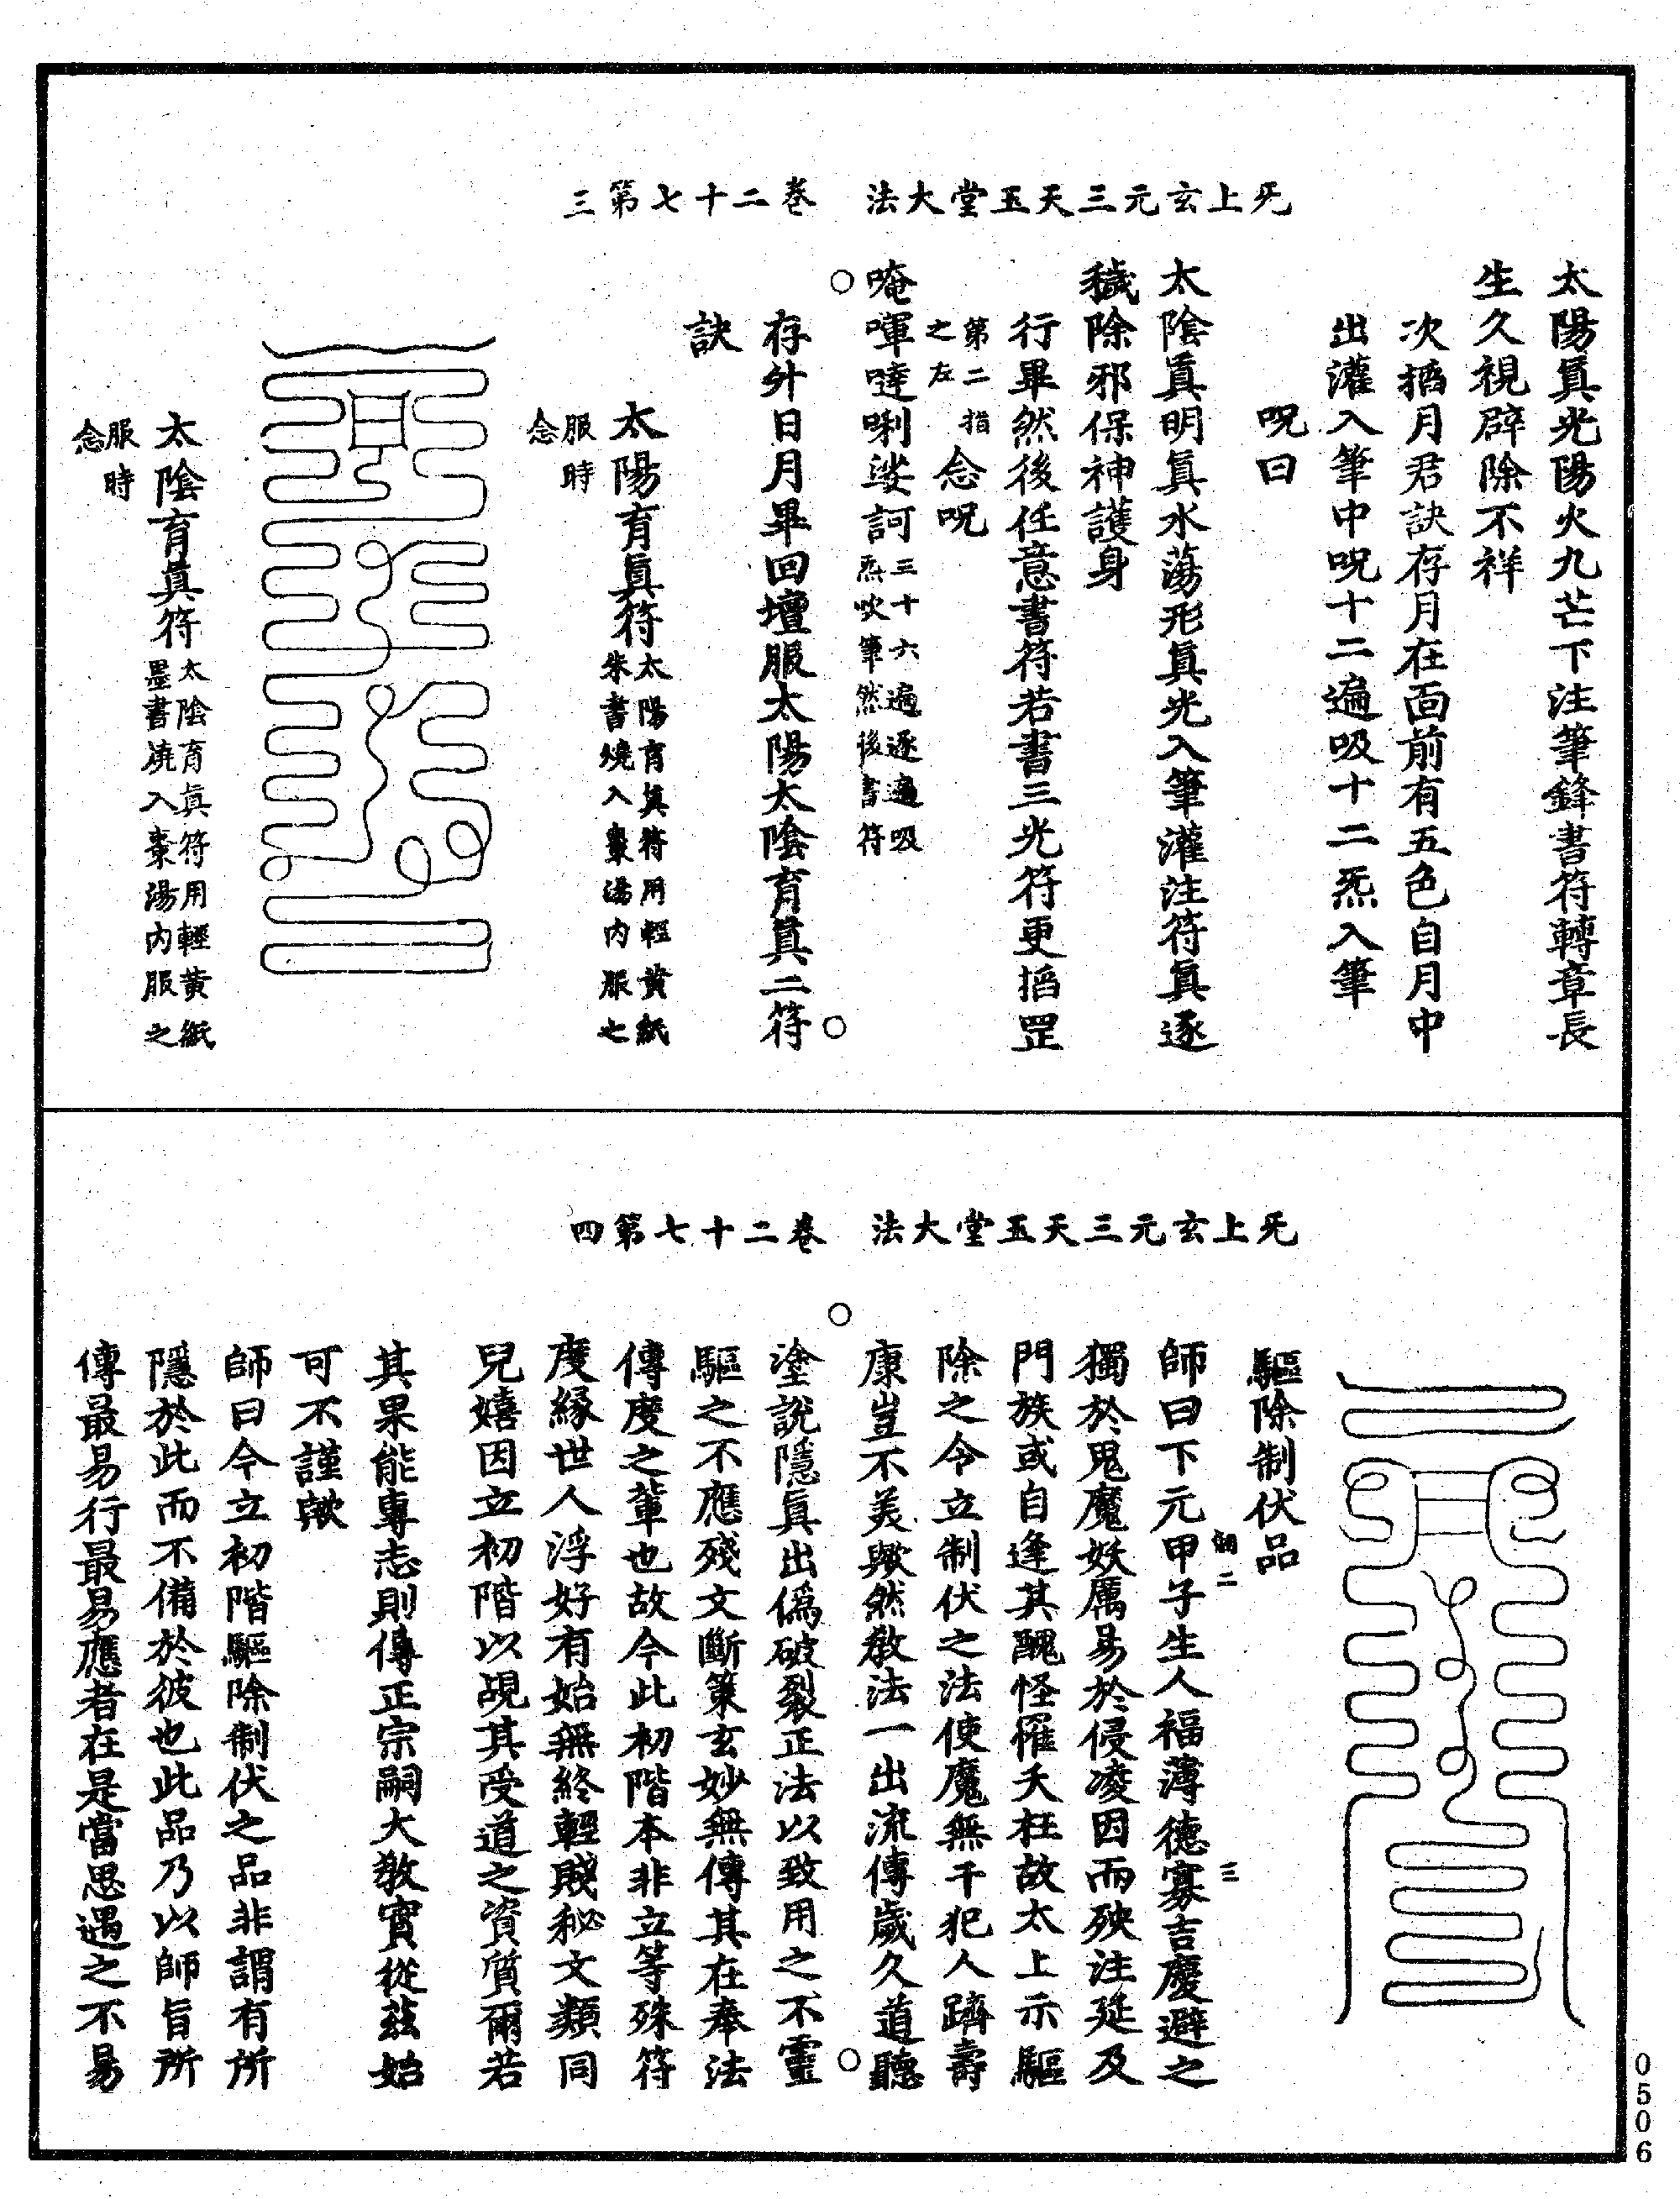 三第七十二卷　法大堂玉天三元玄上旡
太陽真光陽火九芒下注筆鋒書符轉章長
生久視辟除不祥
次掐月君訣存月在面前有五色自月中
出灌入筆中呪十二遍吸十二炁入筆
呪曰
太陰真明真水蕩形真光入筆灌注符真逐
穢除邪保神護身
行畢然後任意書符若書三光符更掐罡
第二指
之左
念呪
唵喗㗚唎娑訶三十六遍逐遍吸
炁吹筆然後書符
存外日月畢回壇服太陽太陰育真二符
訣
太陽育真符太陽育真符用輕黃紙
朱書燒入棗湯內服之
服時
念
太陰育真符太陰育真符用輕黃紙
墨書燒入棗湯內服之
服時
念
四第七十二卷　法大堂玉天三元玄上旡
驅除制伏品
師曰下元甲子生人福薄德寡吉慶避之
獨於鬼魔妖厲易於侵凌因而殃注延及
門族或自逢其醜怪罹夭枉故太上示驅
除之令立制伏之法使魔無干犯人躋壽
康豈不美歟然教法一出流傳歲久道聽
塗說隱真出偽破裂正法以致用之不靈
驅之不應殘文斷策玄妙無傳其在奉法
傳度之輩也故今此初階本非立等殊符
度緣世人浮好有始無終輕賤秘文類同
兒嬉因立初階以覘其受道之資質爾若
其果能專志則傳正宗嗣大教實從茲始
可不謹歟
師曰今立初階驅除制伏之品非謂有所
隱於此而不備於彼也此品乃以師旨所
傳最易行最易應者在是當思遇之不易
0506